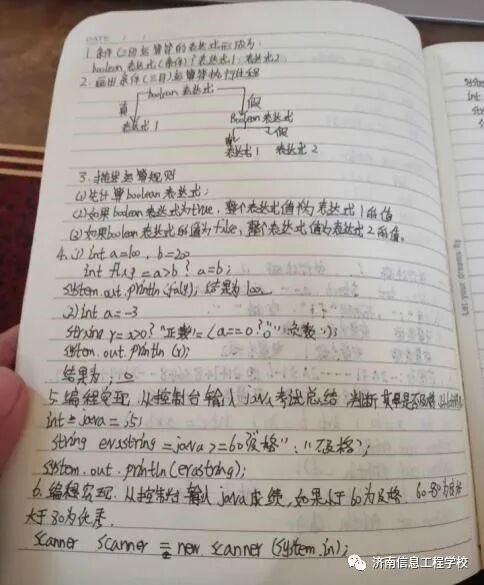 DATE
1.条件(三目)运算符的表达式形成为:
boolean 表达式(条件)?表达式1:表达式2
2.画出条件(三目)运算符执行过程
boolean 表达式
真 假
表达式1 Boolean 表达式
真 假
表达式1 表达式2
3.描述运算规则
(1)先计算boolean 表达式;
(2)如果boolean表达式为true,整个表达式值均为表达式1的值
(3)如果boolean表达式的值为false,整个表达式值为表达式2的值。
4.(1)int a=100,b=200
int flag=a>b?a=b;
system.out.println(flag);结果为
(2)int a=-3
string y=x>0?"正数"=(a==0?
system.out.println(y);
结果为:
5.编程实现:从控制台输入java考试总结,判断
int = java = 51
string =java>=60"及格":"不及格");
system.out.println(erastring);
6.编程实现:从控制台输入java成绩,如果小于60为及格.60-80为良好
大于80为优秀.
scanner scanner = new scanner(system.in);
济南信息工程学校